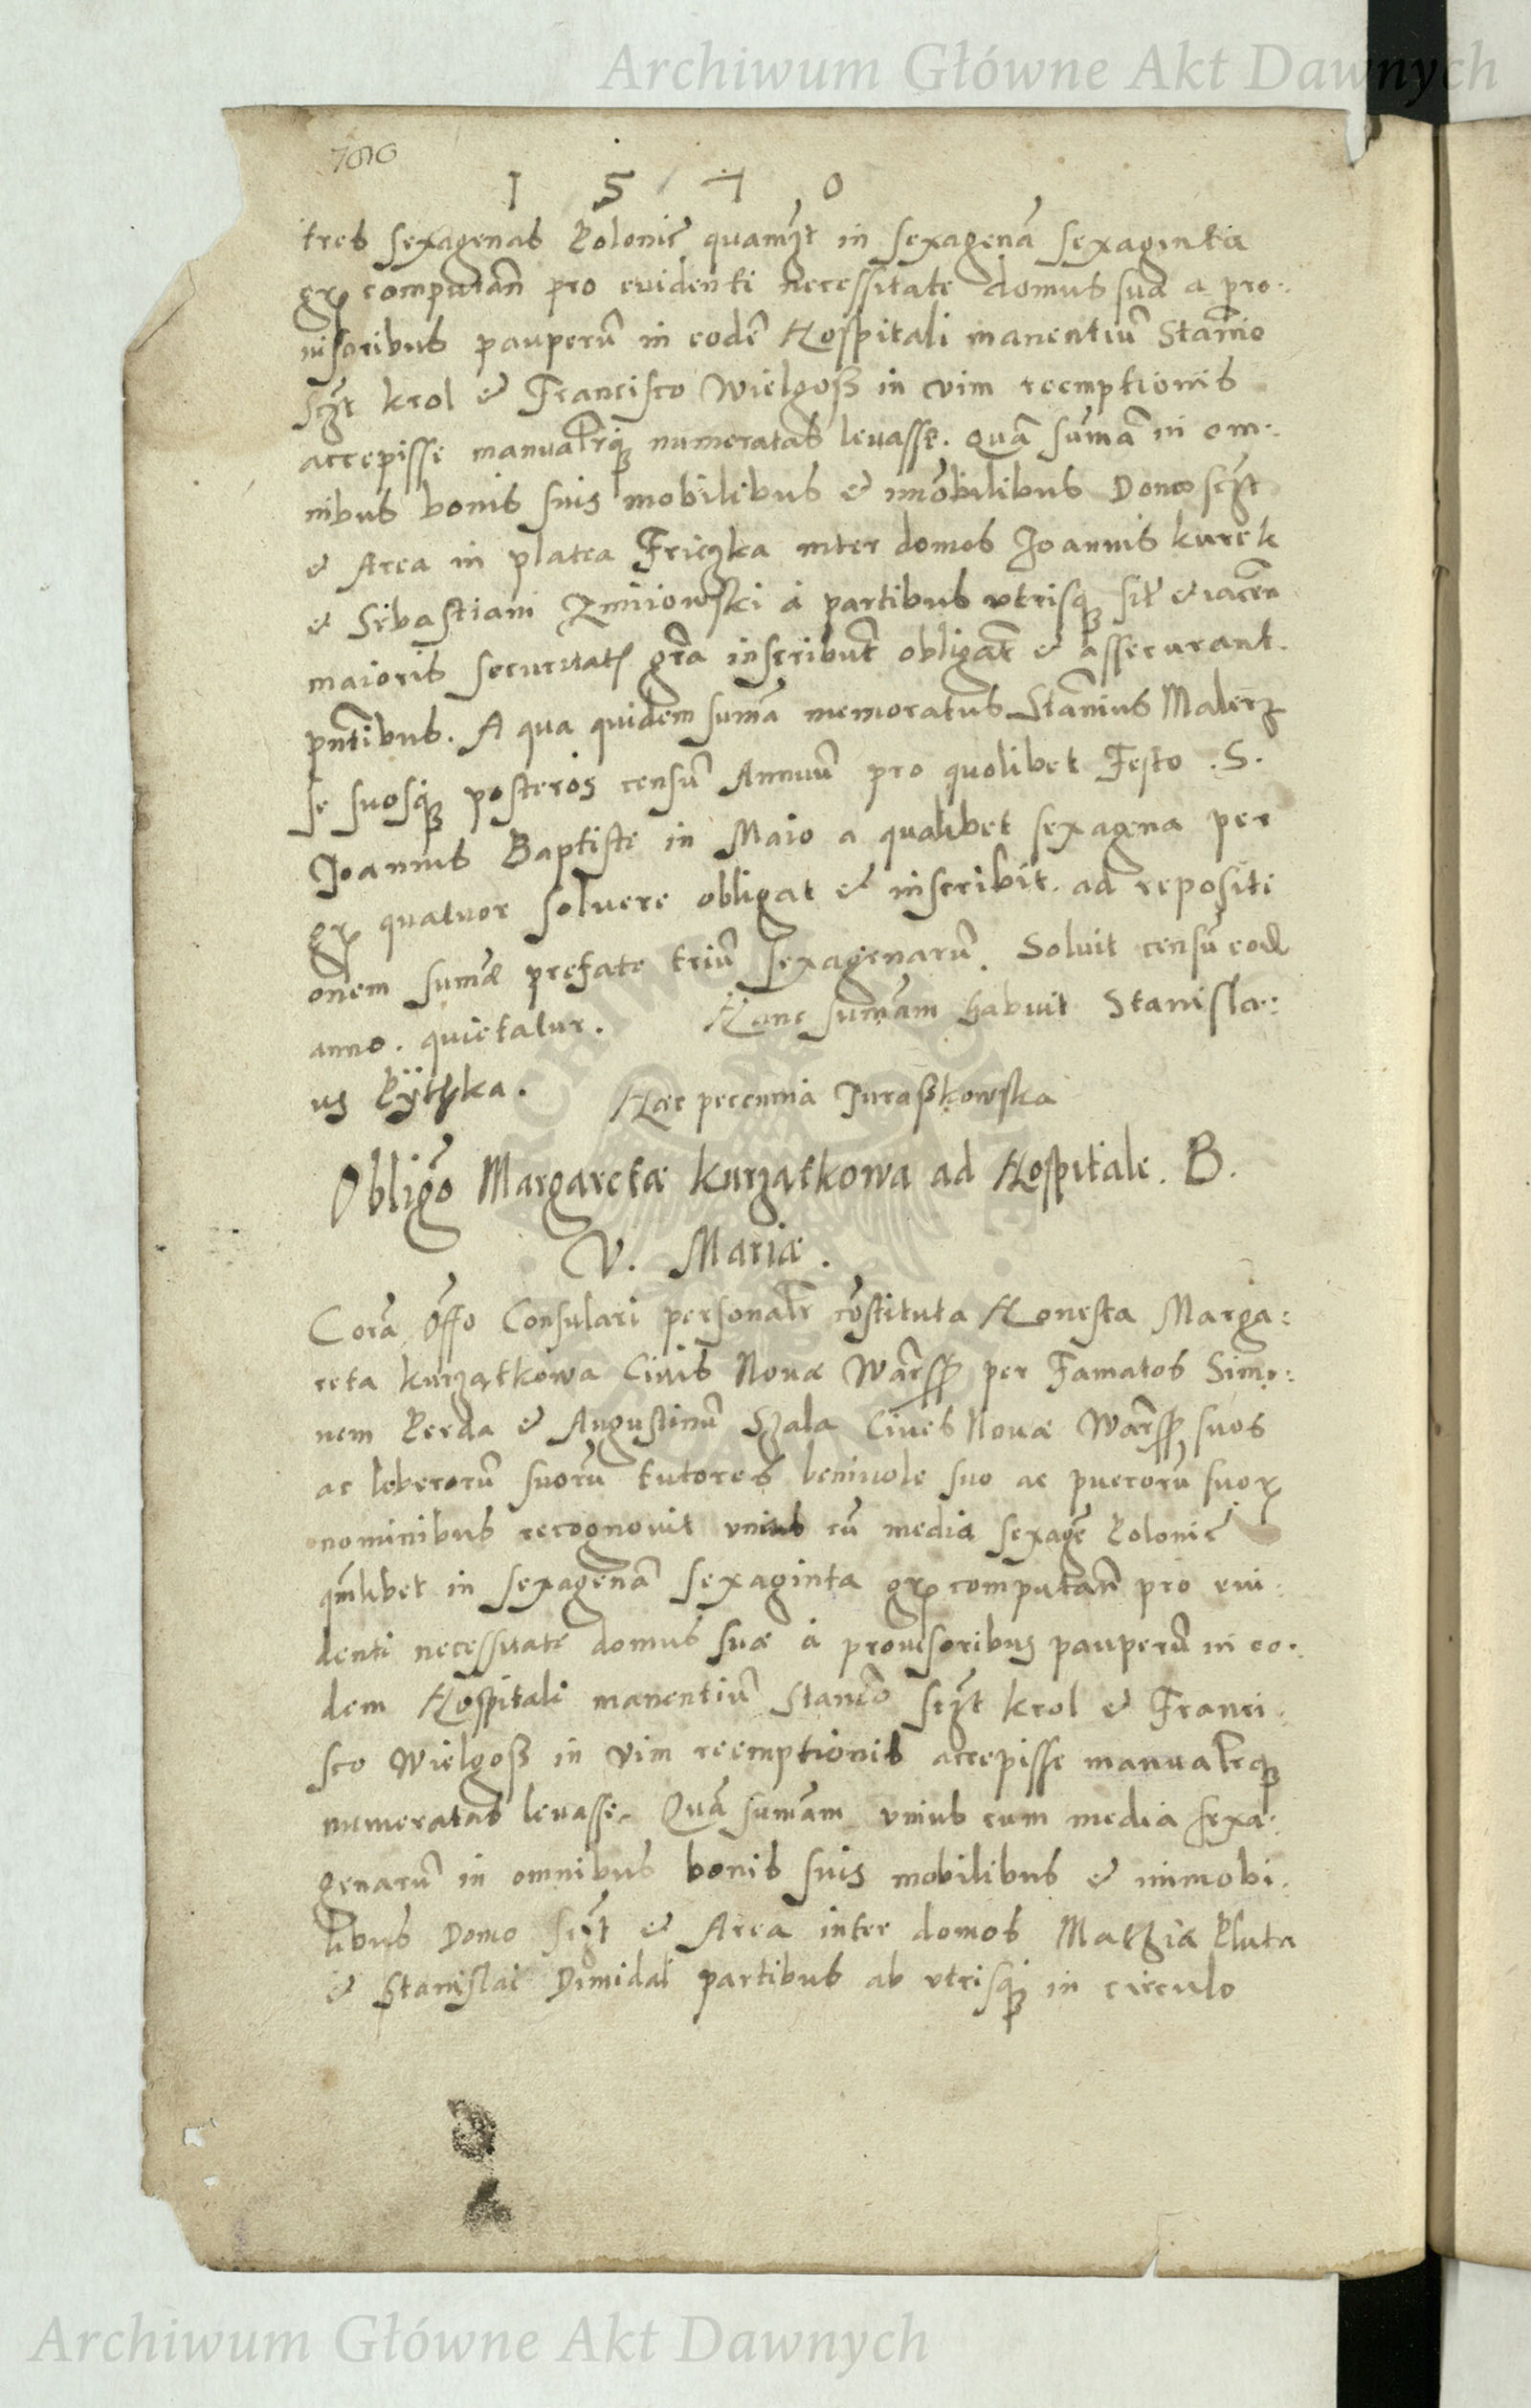 Archiwum Główne Akt Dawnych
1 5 4 0
tres sexagenas Polonic̄ quamꝫt in sexagenā sexaginta
gr̄ computan̄ pro euidenti necessitate domus sua a pro:
uisoribus pauperū in eodē Hospitali manentiū Stan̄io
scꝫt Krol & Francisco Wielgosß in vim reemptionis
accepisse manualrq̄ numeratas leuasse. Quā sum̄ā in om:
nibus bonis suis mobilibus & im̄obilibus Domo scꝫt
& Area in platea Friczka inter domos Joannis Kurek
& Sebastiani Zmiiowski à partibus vtrisq̄ sit̄ & iacen̄
maioris securitat̄ gr̄a inscribūt obligāt & assecurant.
pn̄tibus. A qua quidem sum̄ā memoratus Stan̄ius Malerz
se suosq̄ posteros censū Annuū pro quolibet Festo .S.
Joannis Baptiste in Maio a qualibet sexagena per
gr̄ quatuor soluere obligat & inscribit. ad repositi
onem sum̄æ prefate triū sexagenarū. Soluit censū eod̄
anno. quietatur. Hanc sum̄am habuit Stanisla:
us Pÿthka. Hæc peccunia Juraßkowska
Obligō Margaretæ Kurzątkowa ad Hospitale. B.
V. Mariæ.
Corā Offō Consulari personalr cōstituta Honesta Marga:
reta Kurzątkowa Ciuis Nouæ Warss̄ per Famatos Simo:
nem Perda & Augustinū Szala Ciues Nouæ Warss̄ suos
ac leberorū suorū tutores beniuole suo ac puerorū suor̄
nominibus recognouit vnius cū media sexagē Polonic̄
qm̄libet in sexagenā sexaginta gr̄ computan̄ pro eui:
denti necessitate domus suæ à prouisoribus pauperū in eo:
dem Hospitali manentiū Stan̄io scꝫt Krol & Franci:
sco Wielgoß in vim reemptionis accepisse manualrq̄
numeratas leuasse. Quā sum̄am vnius cum media sexa:
genarū in omnibus bonis suis mobilibus & immobi:
libus Domo scꝫt & Area inter domos Mathiæ Pluta
& Stanislai Dimidai partibus ab vtrisq̄ in circulo
Archiwum Główne Akt Dawnych